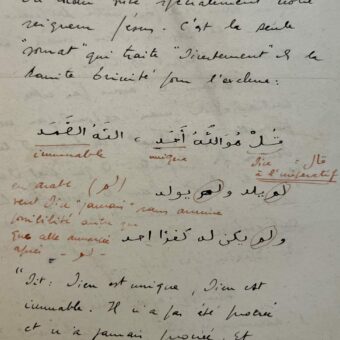 spécialement
seigneur Jésus. C'est la seule
"sourat" qui traite "directement" de la
Sainte Trinité pour l'exclure:
قُلْ هُوَ اللَّهُ أَحَد ، اللَّهُ الصَّمَد
immuable unique Dire قال =
à l'impératif
لم يلد ولم يولد
en arabe (لم)
veut dire "jamais" sans aucune
possibilité autre que
ولم يكن له كفوا احد
que celle annoncée
après - لم -
"Dit: Dieu est unique, Dieu est
immuable. Il n'a pas été procréé
et n'a jamais procréé. Et